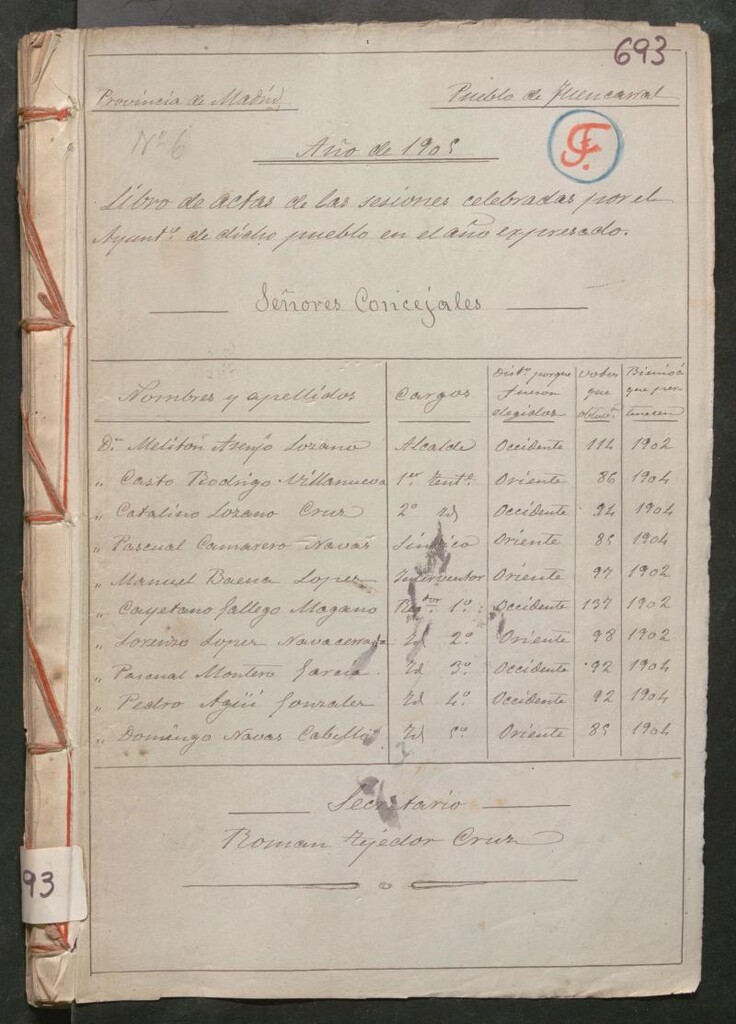 693
Provincia de Madrid
Pueblo de Fuencarral
Nº 6
F.
Año de 1905
Libro de actas de las sesiones celebradas por el
Ayuntº de dicho pueblo en el año expresado.
Señores Concejales
Nombres y apellidos Cargos Distº porque fueron elegidos Votos que obtuvº Bienio á que pertenecen
Dn Melitón Asenjo Lozano Alcalde Occidente 114 1902
" Casto Rodrigo Villanueva 1er Tente Oriente 86 1904
" Catalino Lozano Cruz 2º id Occidente 94 1904
" Pascual Camarero Navas Síndico Oriente 85 1904
" Manuel Baena Lopez Interventor Oriente 97 1902
" Cayetano Gallego Magano Regdor 1º Occidente 137 1902
" Lorenzo Lopez Navacerrada Id 2º Oriente 98 1902
" Pascual Montero Garcia Id 3º Occidente 92 1904
" Pedro Agüi Gonzalez Id 4º Occidente 92 1904
" Domingo Navas Cabello Id 5º Oriente 85 1904
Secretario
Roman Tejedor Cruz
93